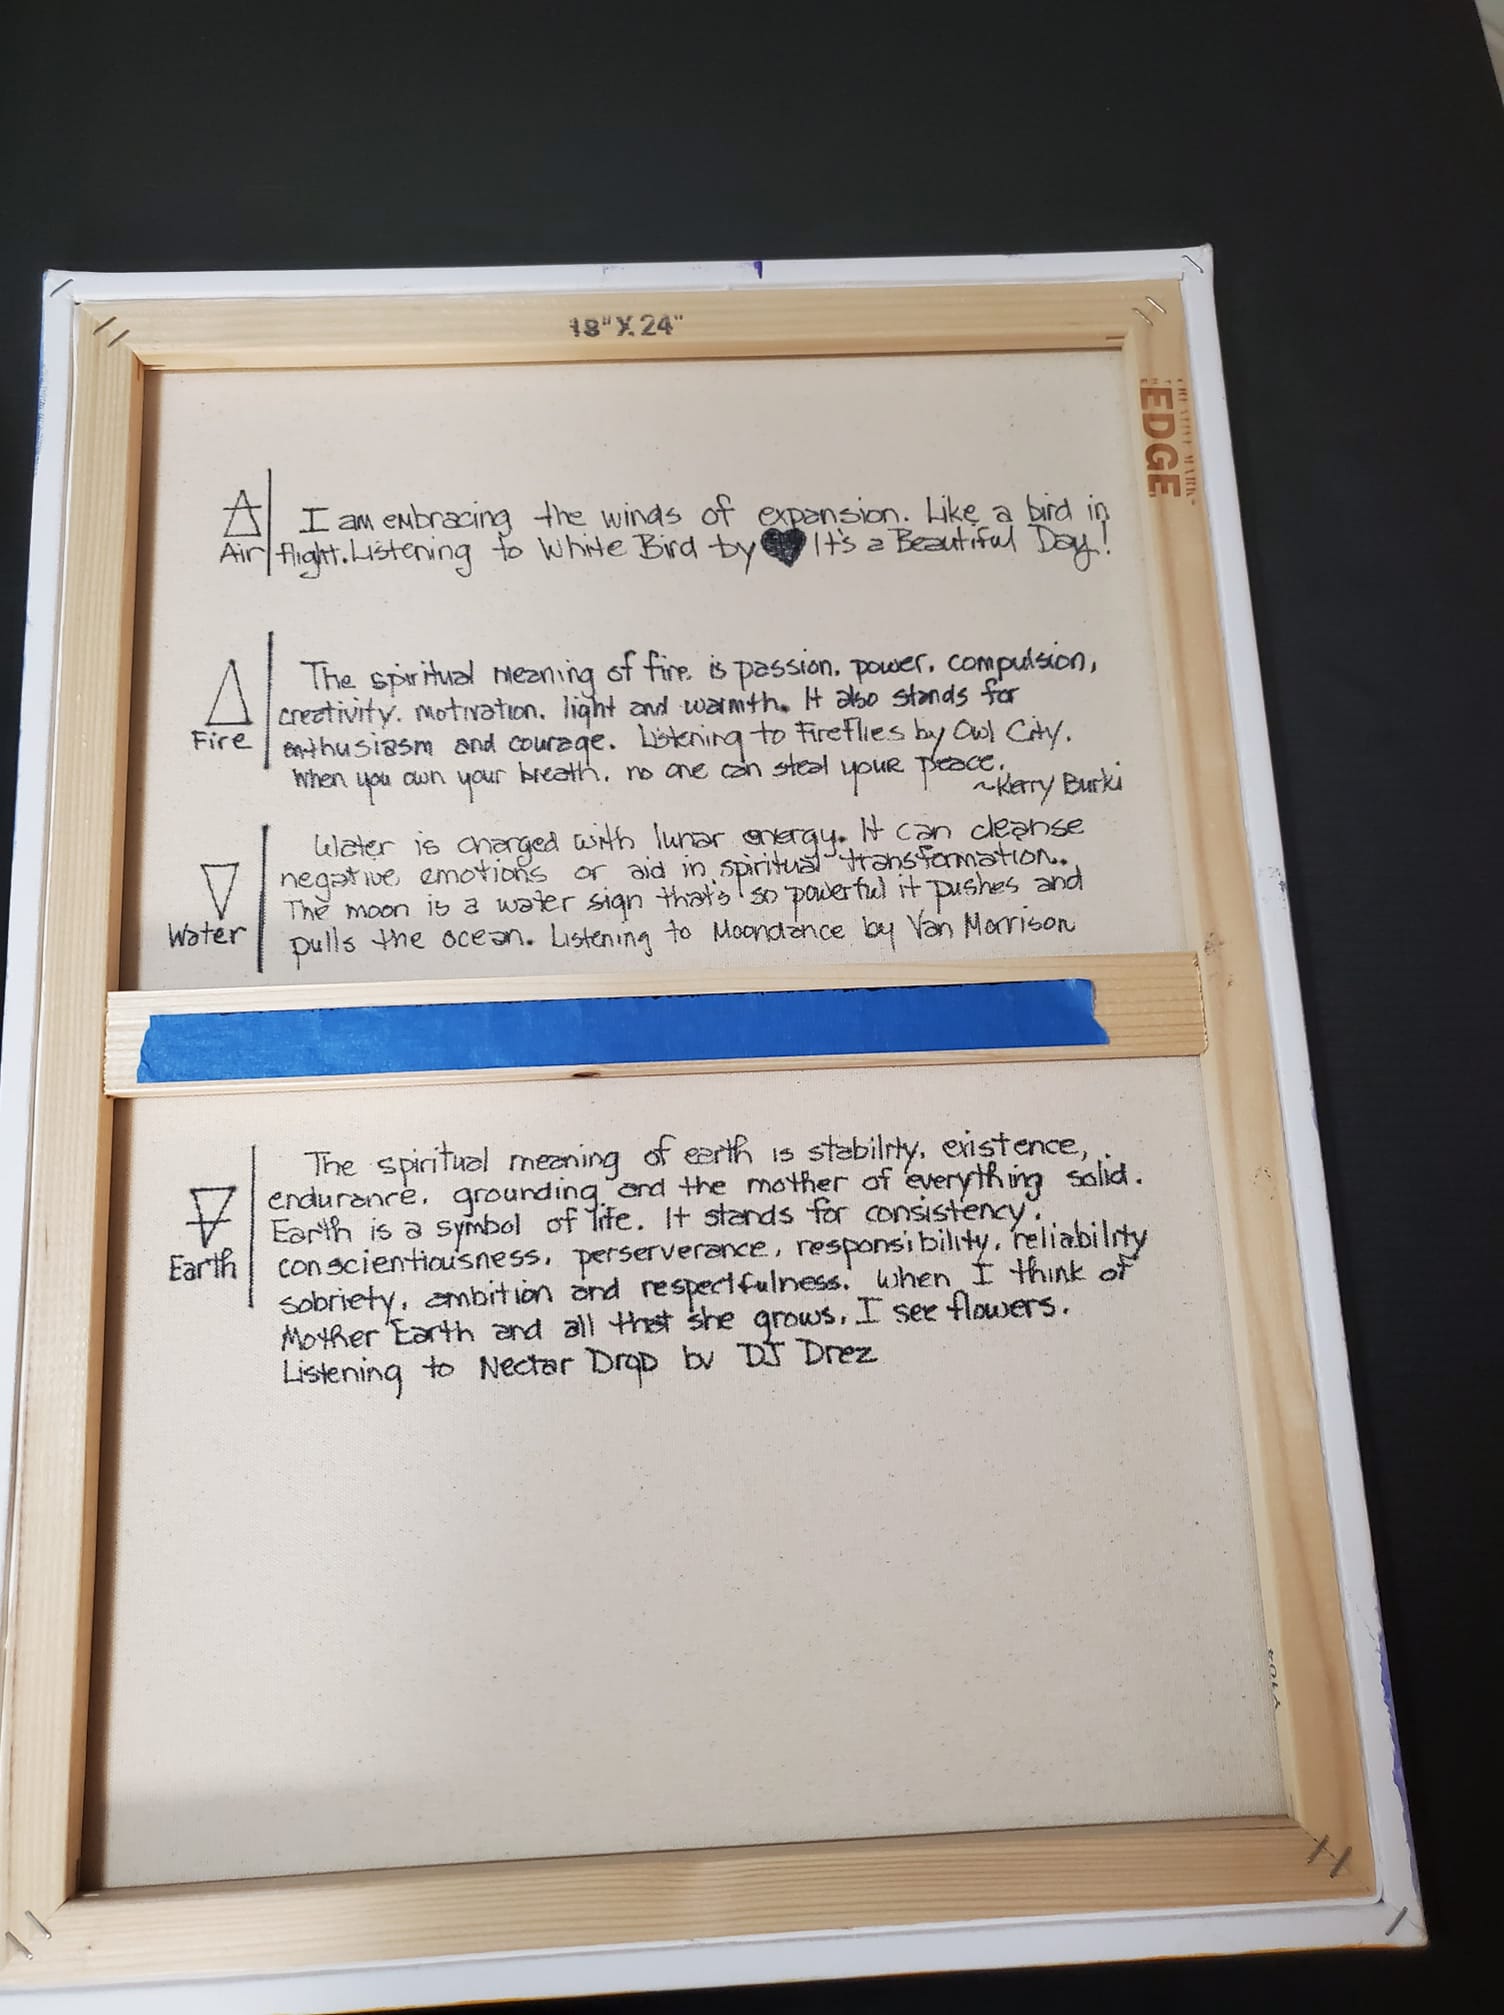 18" X 24"
CREATIVE MARK
EDGE
I am embracing the winds of expansion. Like a bird in
Air flight. Listening to White Bird by It's a Beautiful Day!
The spiritual meaning of fire is passion, power, compulsion,
creativity, motivation, light and warmth. It also stands for
Fire enthusiasm and courage. Listening to Fireflies by Owl City.
When you own your breath, no one can steal your peace.
~Kerry Burki
Water is charged with lunar energy. It can cleanse
negative emotions or aid in spiritual transformation.
The moon is a water sign that's so powerful it pushes and
Water pulls the ocean. Listening to Moondance by Van Morrison
The spiritual meaning of earth is stability, existence,
endurance, grounding and the mother of everything solid.
Earth is a symbol of life. It stands for consistency,
Earth conscientiousness, perserverance, responsibility, reliability
sobriety, ambition and respectfulness. When I think of
Mother Earth and all that she grows, I see flowers.
Listening to Nectar Drop by DJ Drez